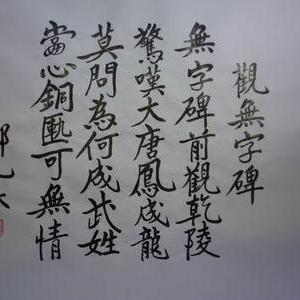 觀無字碑
無字碑前觀乾陵
驚嘆大唐鳳成龍
莫問為何成武姓
當心銅匭可無情